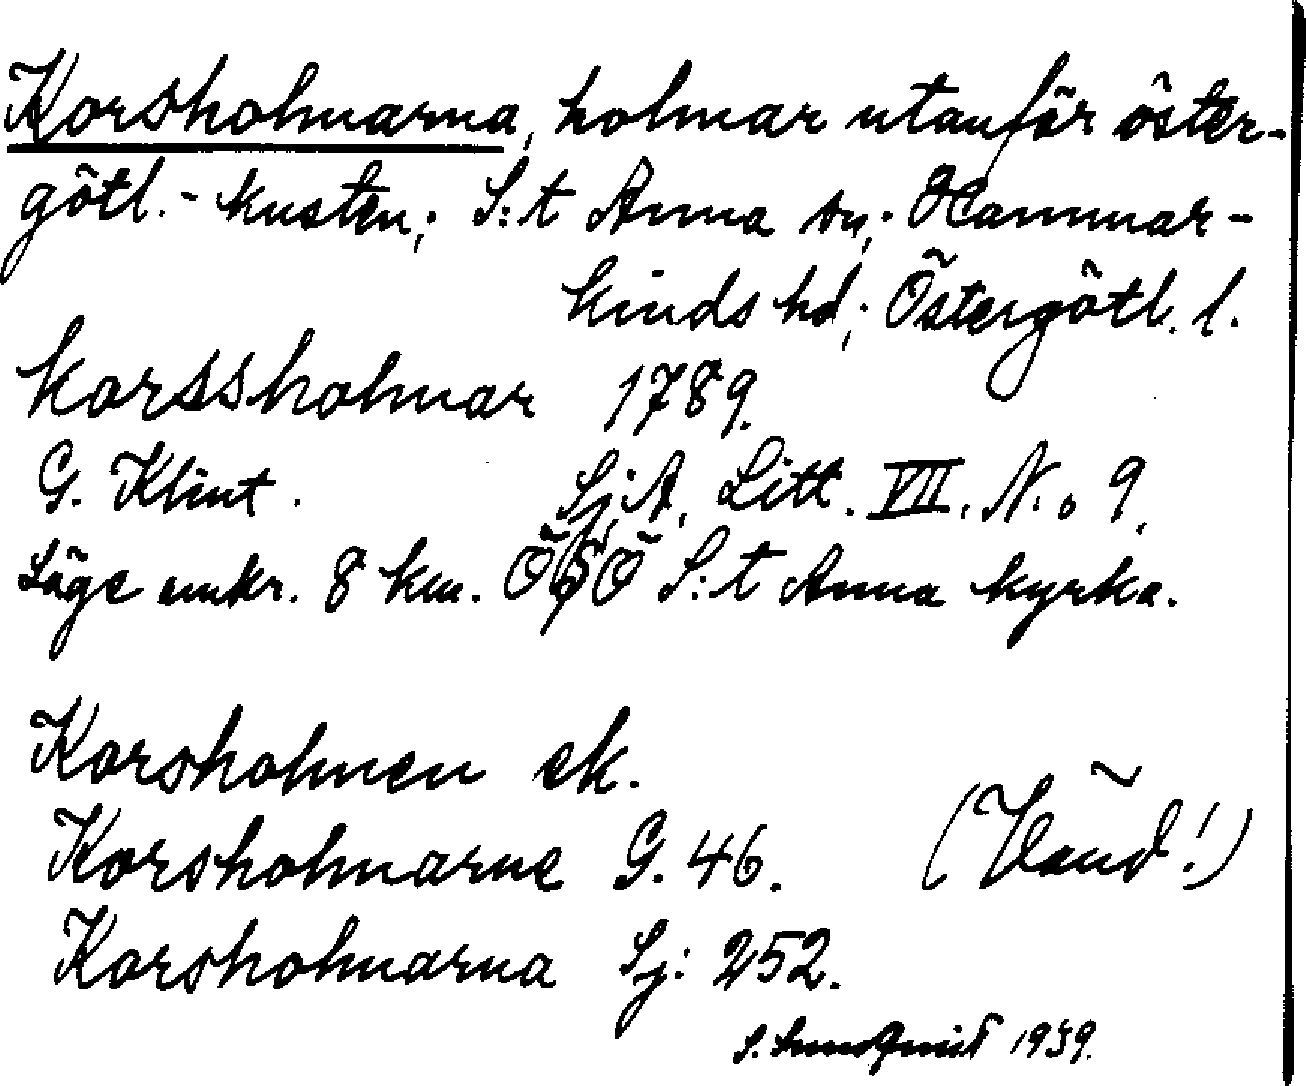 Korsholmarna, holmar utanför öster-
götl.-kusten; S:t Anna sn; Hammar-
kinds hd; Östergötl. l.
Korssholmar 1789.
G. Klint. Sj.A. Litt. VII. N.o 9.
Läge omkr. 8 km. ÖSÖ S:t Anna kyrka.
Korsholmen ek.
Korsholmarne G. 46. (Vänd!)
Korsholmarna Sj: 252.
S. Sundqvist 1939.